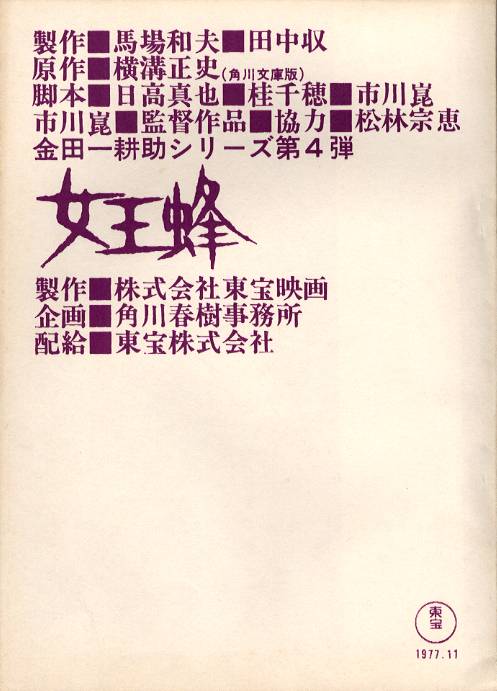 製作■馬場和夫■田中収
原作■横溝正史(角川文庫版)
脚本■日高真也■桂千穂■市川崑
市川崑■監督作品■協力■松林宗恵
金田一耕助シリーズ第4弾
女王蜂
製作■株式会社東宝映画
企画■角川春樹事務所
配給■東宝株式会社
東宝
1977.11